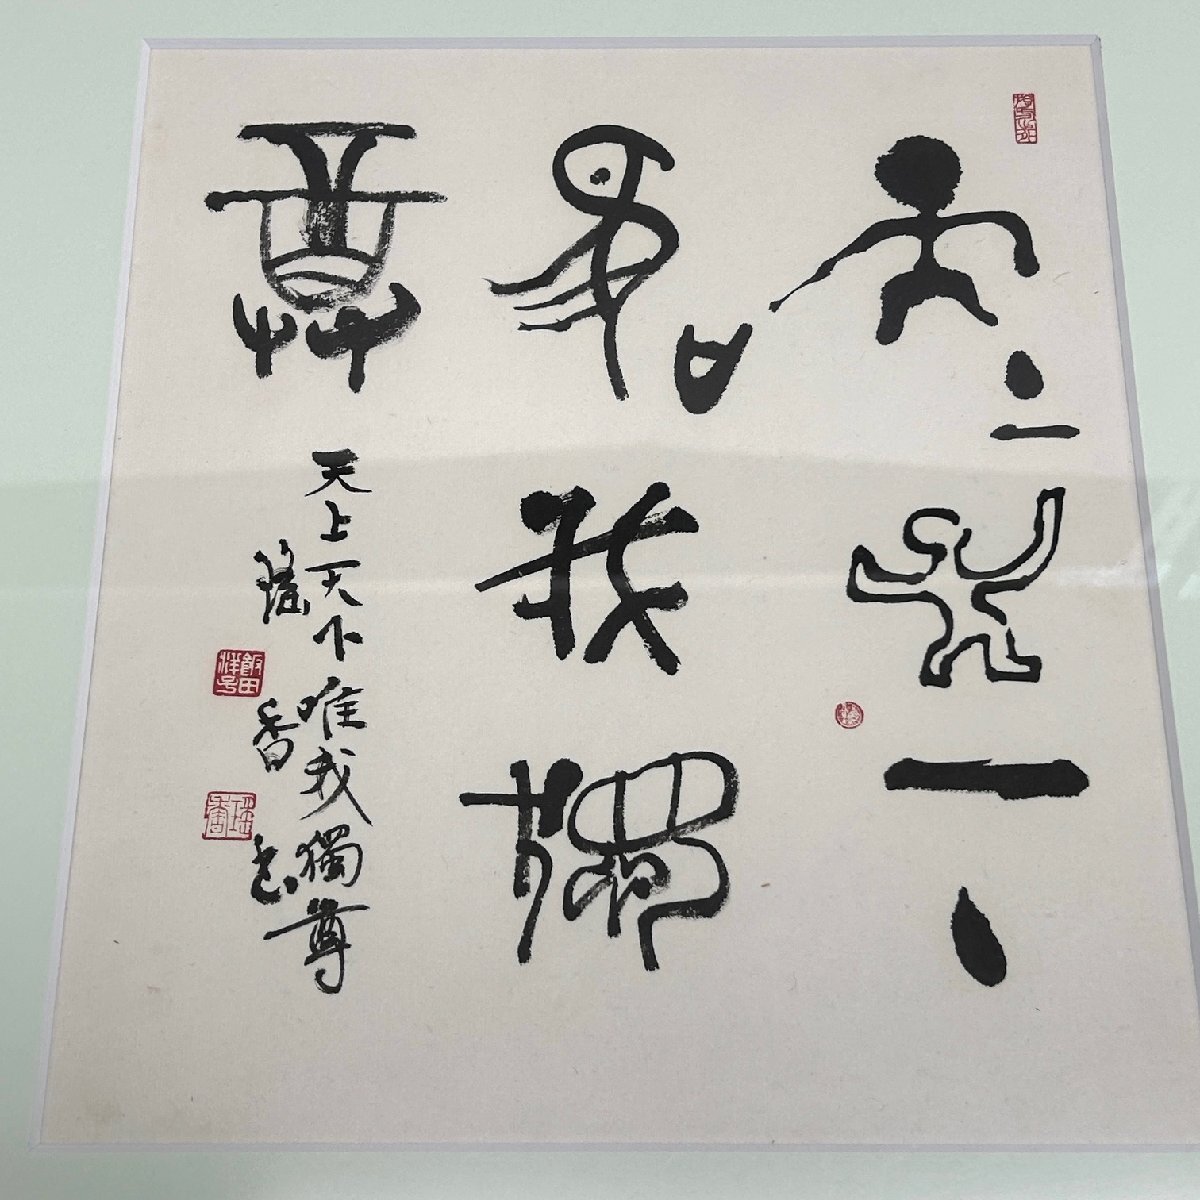 天上天下
唯我獨
尊
天上天下唯我獨尊
瑤香書
飯田
祥子
瑤香